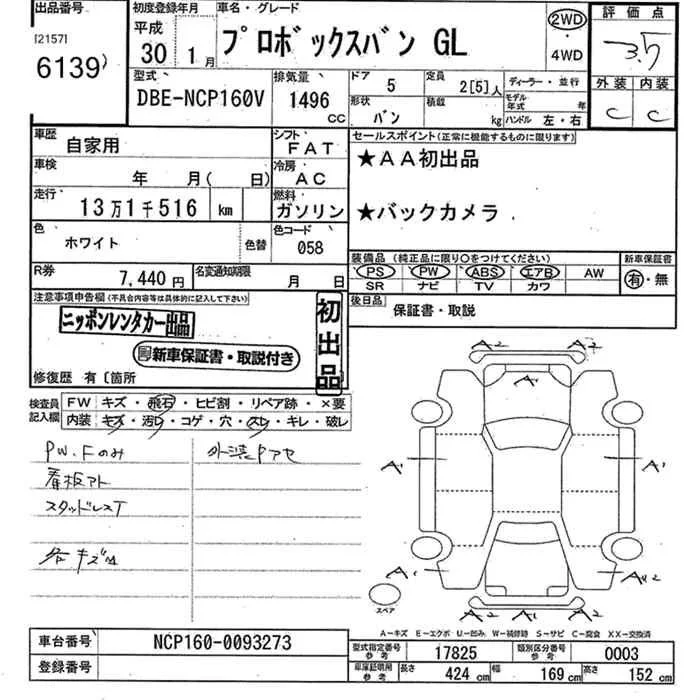 出品番号 初度登録年月 車名・グレード 2WD 評価点
[2157] 平成 プロボックスバン GL 3.5
6139 30年 1月 4WD
型式 排気量 ドア 5 定員 2[5]人 ディーラー・並行 外装 内装
DBE-NCP160V 1496 CC 形状 バン 積載 kg モデル年式 年 ハンドル 左・右 C C
車歴 自家用 シフト FAT セールスポイント(正常に機能するものに限ります)
車検 年 月( 日) 冷房 AC ★AA初出品
走行 13万1千516 km 燃料 ガソリン ★バックカメラ
色 ホワイト 色替 色コード 058
装備品 (純正品に限り○をつけてください) 新車保証書
PS PW ABS エアB AW 有・無
SR ナビ TV カワ
R券 7,440円 名変通知期限 月 日
後日品 保証書・取説
注意事項申告欄(不具合内容等は具体的に記入して下さい)
ニッポンレンタカー出品
初出品
新車保証書・取説付き
修復歴 有〔箇所
検査員記入欄 FW キズ・飛石・ヒビ割・リペア跡・×要
内装 キズ・汚レ・コゲ・穴・スレ・キレ・破レ
PW.Fのみ 外装Pアセ
看板アト
スタッドレスT
各キズ
A2 A2
A1
A1 A1
A1 A2
スペア
A-キズ E-エクボ U-凹ミ W-補修跡 S-サビ C-腐食 XX-交換済
車台番号 NCP160-0093273 型式指定番号 参考 17825 類別区分番号 参考 0003
登録番号 車庫証明用 参考 長さ 424 cm 幅 169 cm 高さ 152 cm